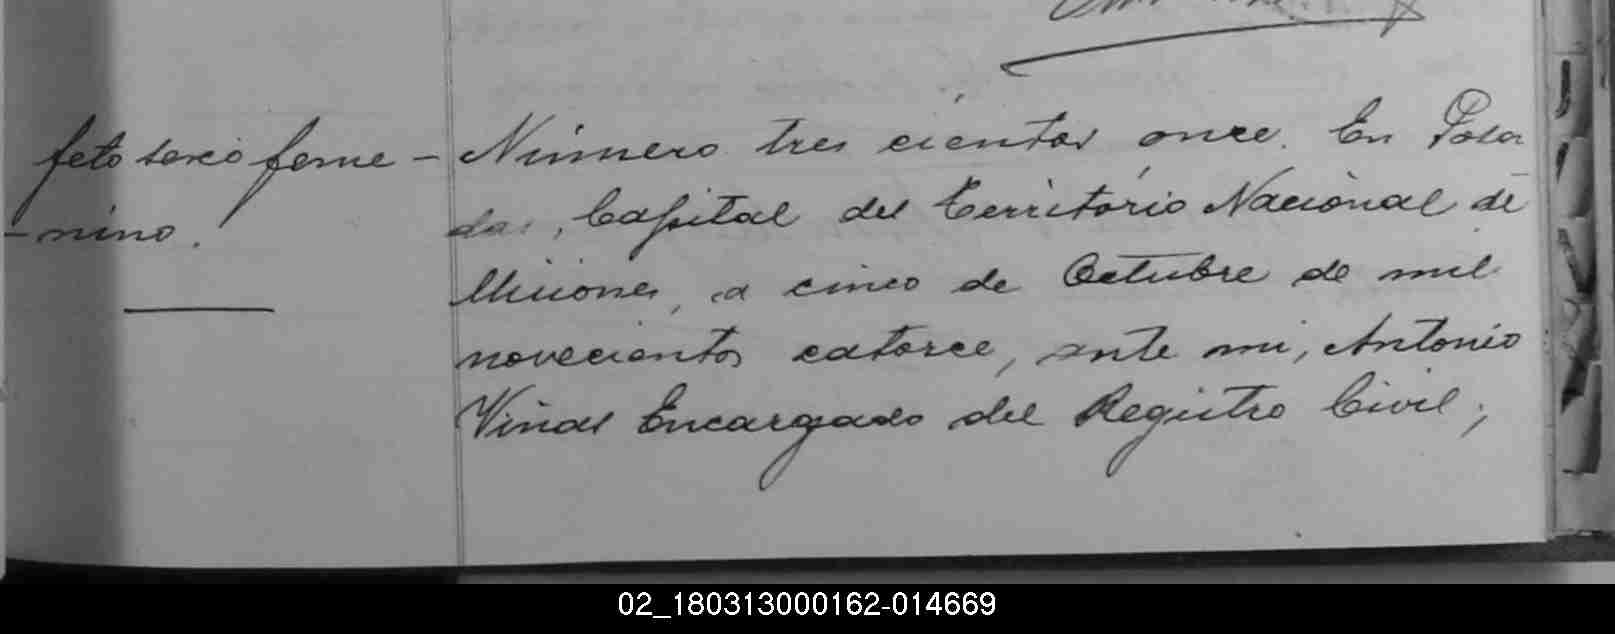 feto sexo feme-
-nino.
Número tres cientos once. En Posa
das, Capital del Território Nacional de
Misiones, a cinco de Octubre de mil
novecientos catorce, ante mi, Antonio
Viñas Encargado del Registro Civil;
02_180313000162-014669